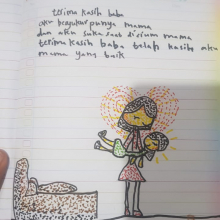 terima kasih baba
aku bersyukur punya mama
dan aku suka saat dicium mama
terima kasih baba telah kasih aku
mama yang baik